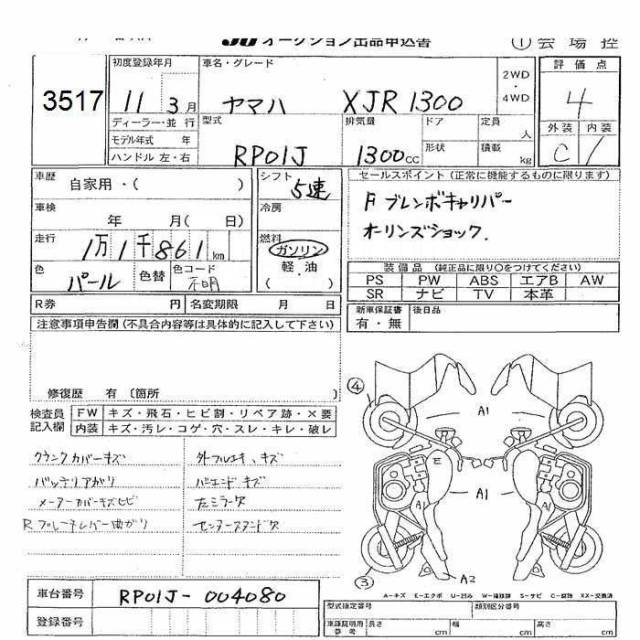 JU オークション出品申込書 ① 会場控
3517
初度登録年月
11 3月
車名・グレード
ヤマハ XJR1300
2WD
・
4WD
評価点
4
外装 内装
C 1
ディーラー・並行
モデル年式 年
ハンドル 左・右
型式
RP01J
排気量
1300cc
ドア
形状
定員
人
積載
kg
車歴
自家用・( )
車検
年 月( 日)
走行
1万1千861km
色
パール
色替
色コード
不明
シフト
5速
冷房
燃料
ガソリン
軽・油
( )
セールスポイント(正常に機能するものに限ります)
F ブレンボキャリパー
オーリンズショック.
装備品 (純正品に限り○をつけてください)
PS PW ABS エアB AW
SR ナビ TV 本革
R券 円 名変期限 月 日
新車保証書
有・無
後日品
注意事項申告欄(不具合内容等は具体的に記入して下さい)
修復歴 有 〔箇所
検査員
記入欄
FW キズ・飛石・ヒビ割・リペア跡・×要
内装 キズ・汚レ・コゲ・穴・スレ・キレ・破レ
クランクカバーキズ
バッテリアガリ
メーターカバーキズヒビ
R ブレーキレバー曲がり
外フルエキ、キズ
バーエンド キズ
左ミラー欠
センタースタンド欠
④
A1
E
A1
A1
③
A2
A-キズ E-エクボ U-凹み W-補修跡 S-サビ C-腐蝕 XX-交換済
車台番号
RP01J-004080
登録番号
型式指定番号
類別区分番号
車庫証明用
参考
長さ cm
幅 cm
高さ cm